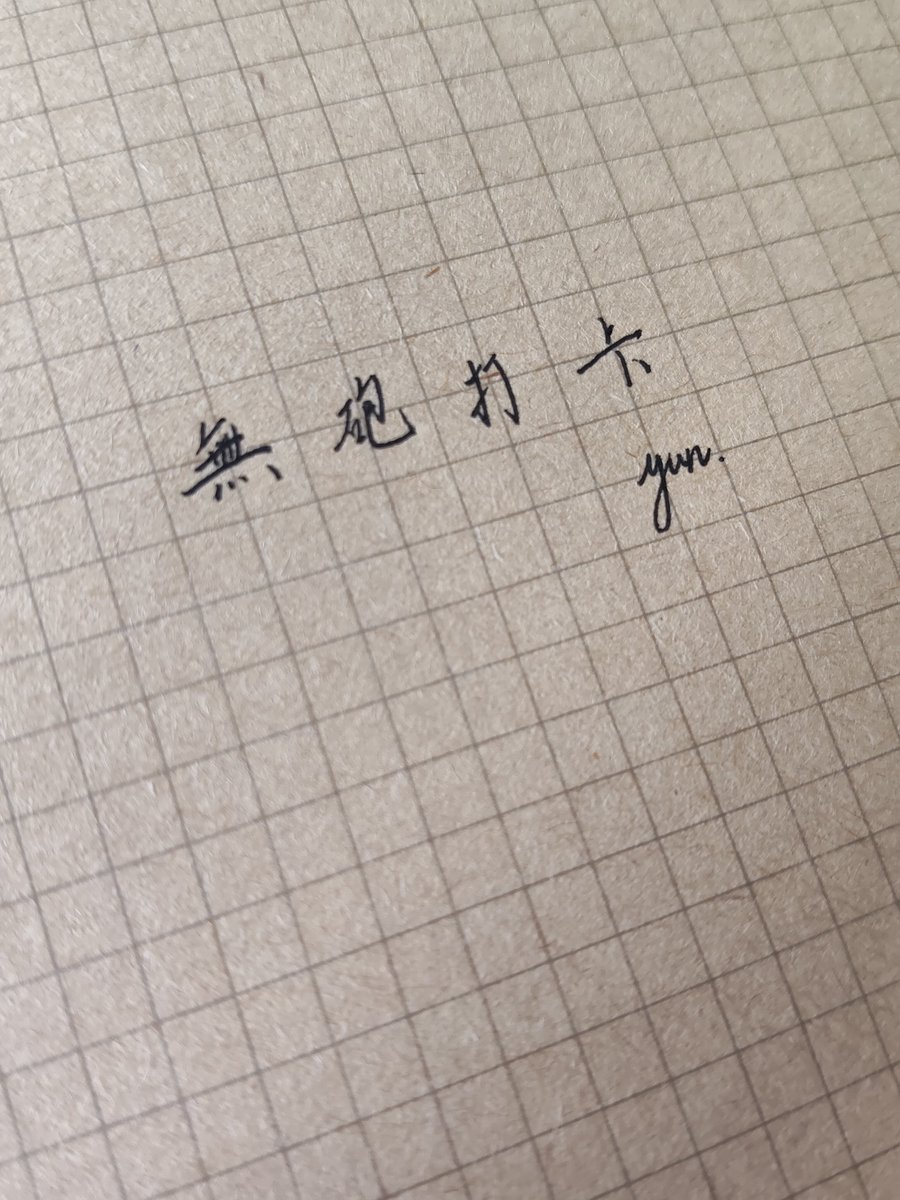 無砲打卡
yun.